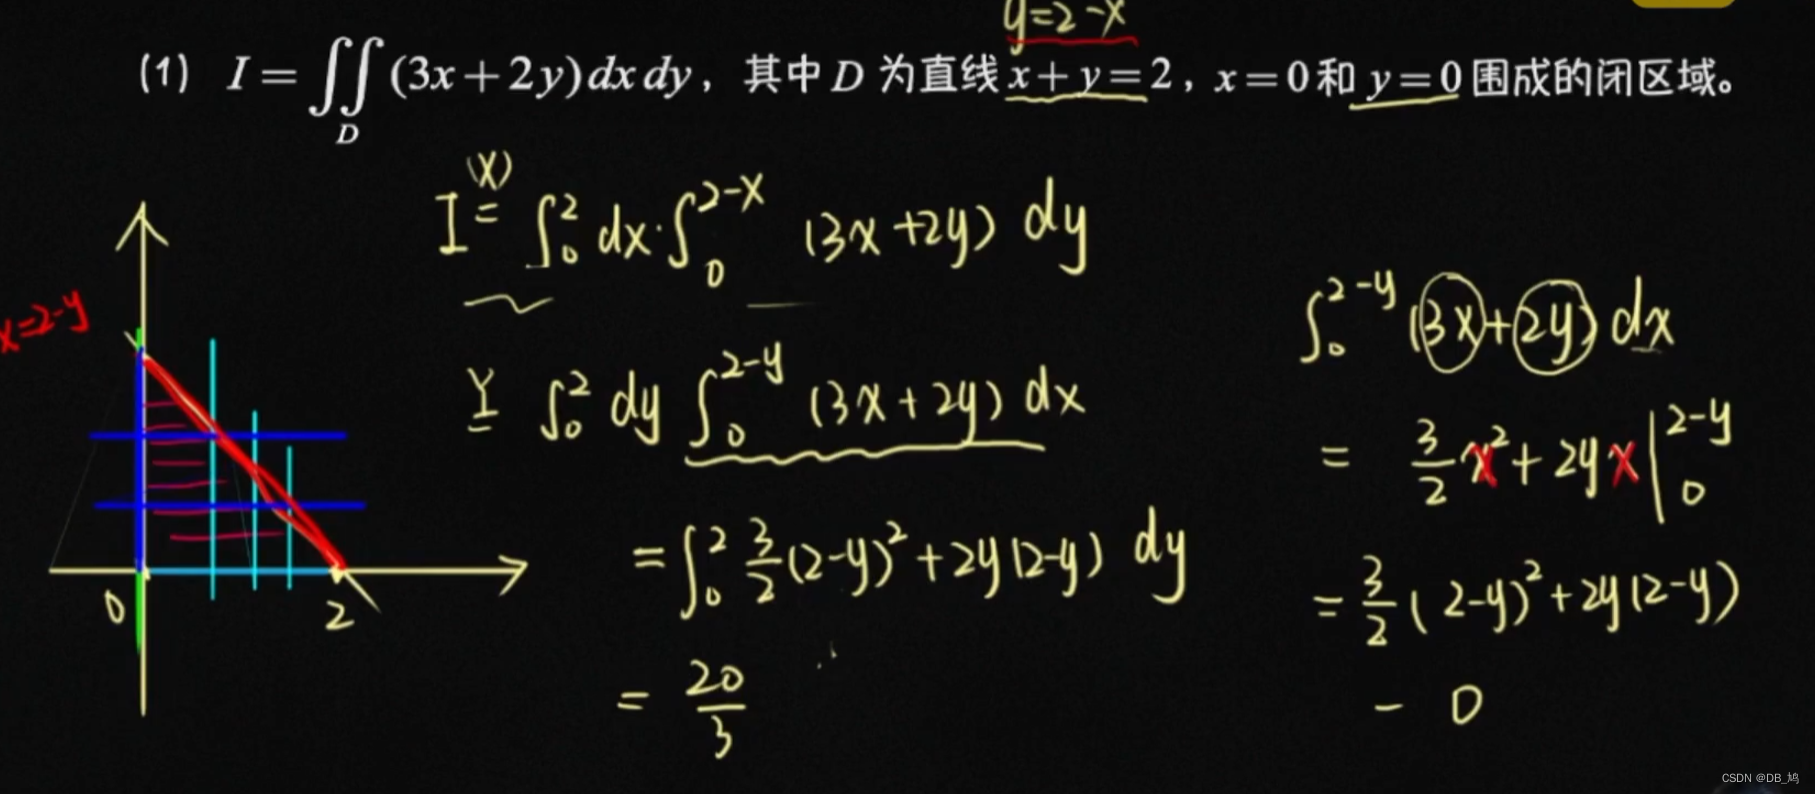 y=2-x
(1) I = ∬_D (3x+2y)dxdy, 其中 D 为直线 x+y=2, x=0和 y=0 围成的闭区域。
I =^(X) ∫_0^2 dx·∫_0^{2-x} (3x+2y) dy
x=2-y
Y ∫_0^2 dy ∫_0^{2-y} (3x+2y) dx
= ∫_0^2 3/2(2-y)^2+2y(2-y) dy
= 20/3
0
2
∫_0^{2-y} (3x+2y) dx
= 3/2 x^2+2yx |_0^{2-y}
= 3/2(2-y)^2+2y(2-y)
- 0
CSDN @DB_鸠